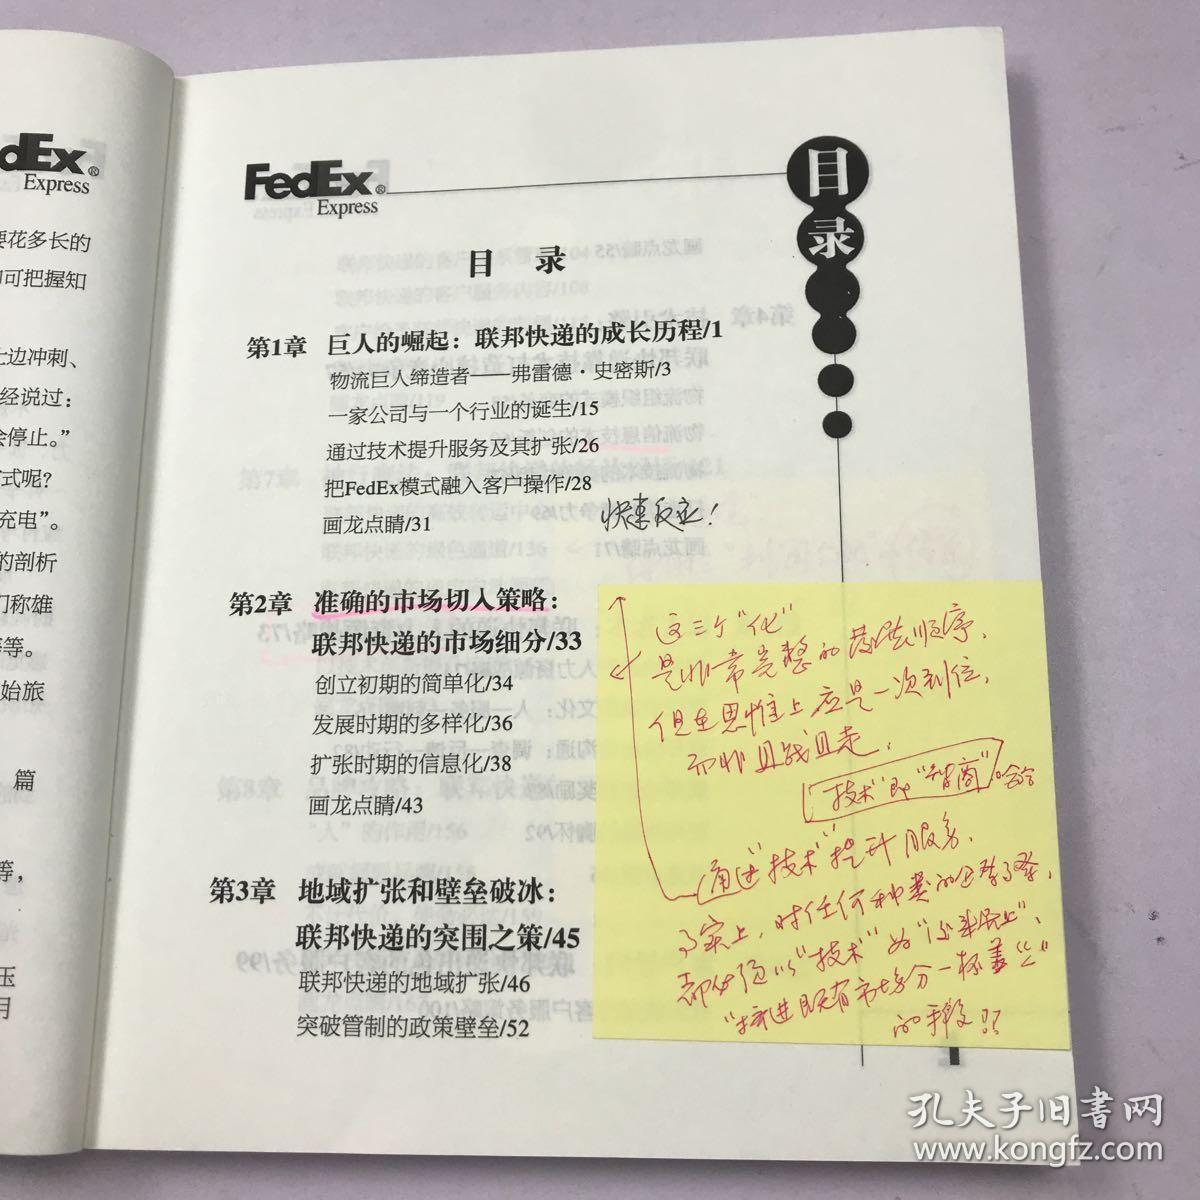 dEx®
Express
要花多长的
可把握知
边冲刺、
经说过：
会停止。”
式呢？
充电”。
的剖析
们称雄
等。
始旅
篇
等，
玉
月
FedEx®
Express
目录
目 录
第1章 巨人的崛起：联邦快递的成长历程/1
物流巨人缔造者——弗雷德·史密斯/3
一家公司与一个行业的诞生/15
通过技术提升服务及其扩张/26
把FedEx模式融入客户操作/28
画龙点睛/31
快速反应！
第2章 准确的市场切入策略：
联邦快递的市场细分/33
创立初期的简单化/34
发展时期的多样化/36
扩张时期的信息化/38
画龙点睛/43
第3章 地域扩张和壁垒破冰：
联邦快递的突围之策/45
联邦快递的地域扩张/46
突破管制的政策壁垒/52
这三个“化”
是非常完整的 顺序，
但在思维上应是一次到位，
而非且战且走，
“技术”即“智商” 哈哈
通过“技术”提升服务，
事实上，对任何种类的
都必须以“技术”为
“挤进既有市场分一杯羹”
的手段！！
孔夫子旧书网
www.kongfz.com